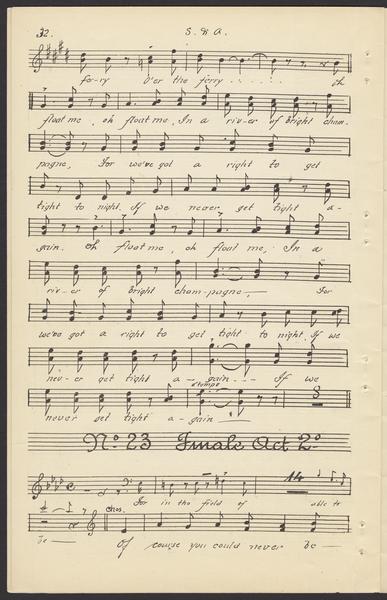 32. S. & A.
fer-ry o'er the ferry . . . . . oh
float me, oh float me, In a riv-er of bright cham-
pagne, For we've got a right to get
tight to night. If we never get tight a-
gain. Oh float me, oh float me, In a
riv-er of bright cham-pagne — For
we've got a right to get tight to night, If we
nev-er get tight a - gain - - - If we
a tempo
never get tight a-gain —
3
No. 23 Finale Act 2º
14
For in the field of able to
Chos.
be — Of course you could never be —